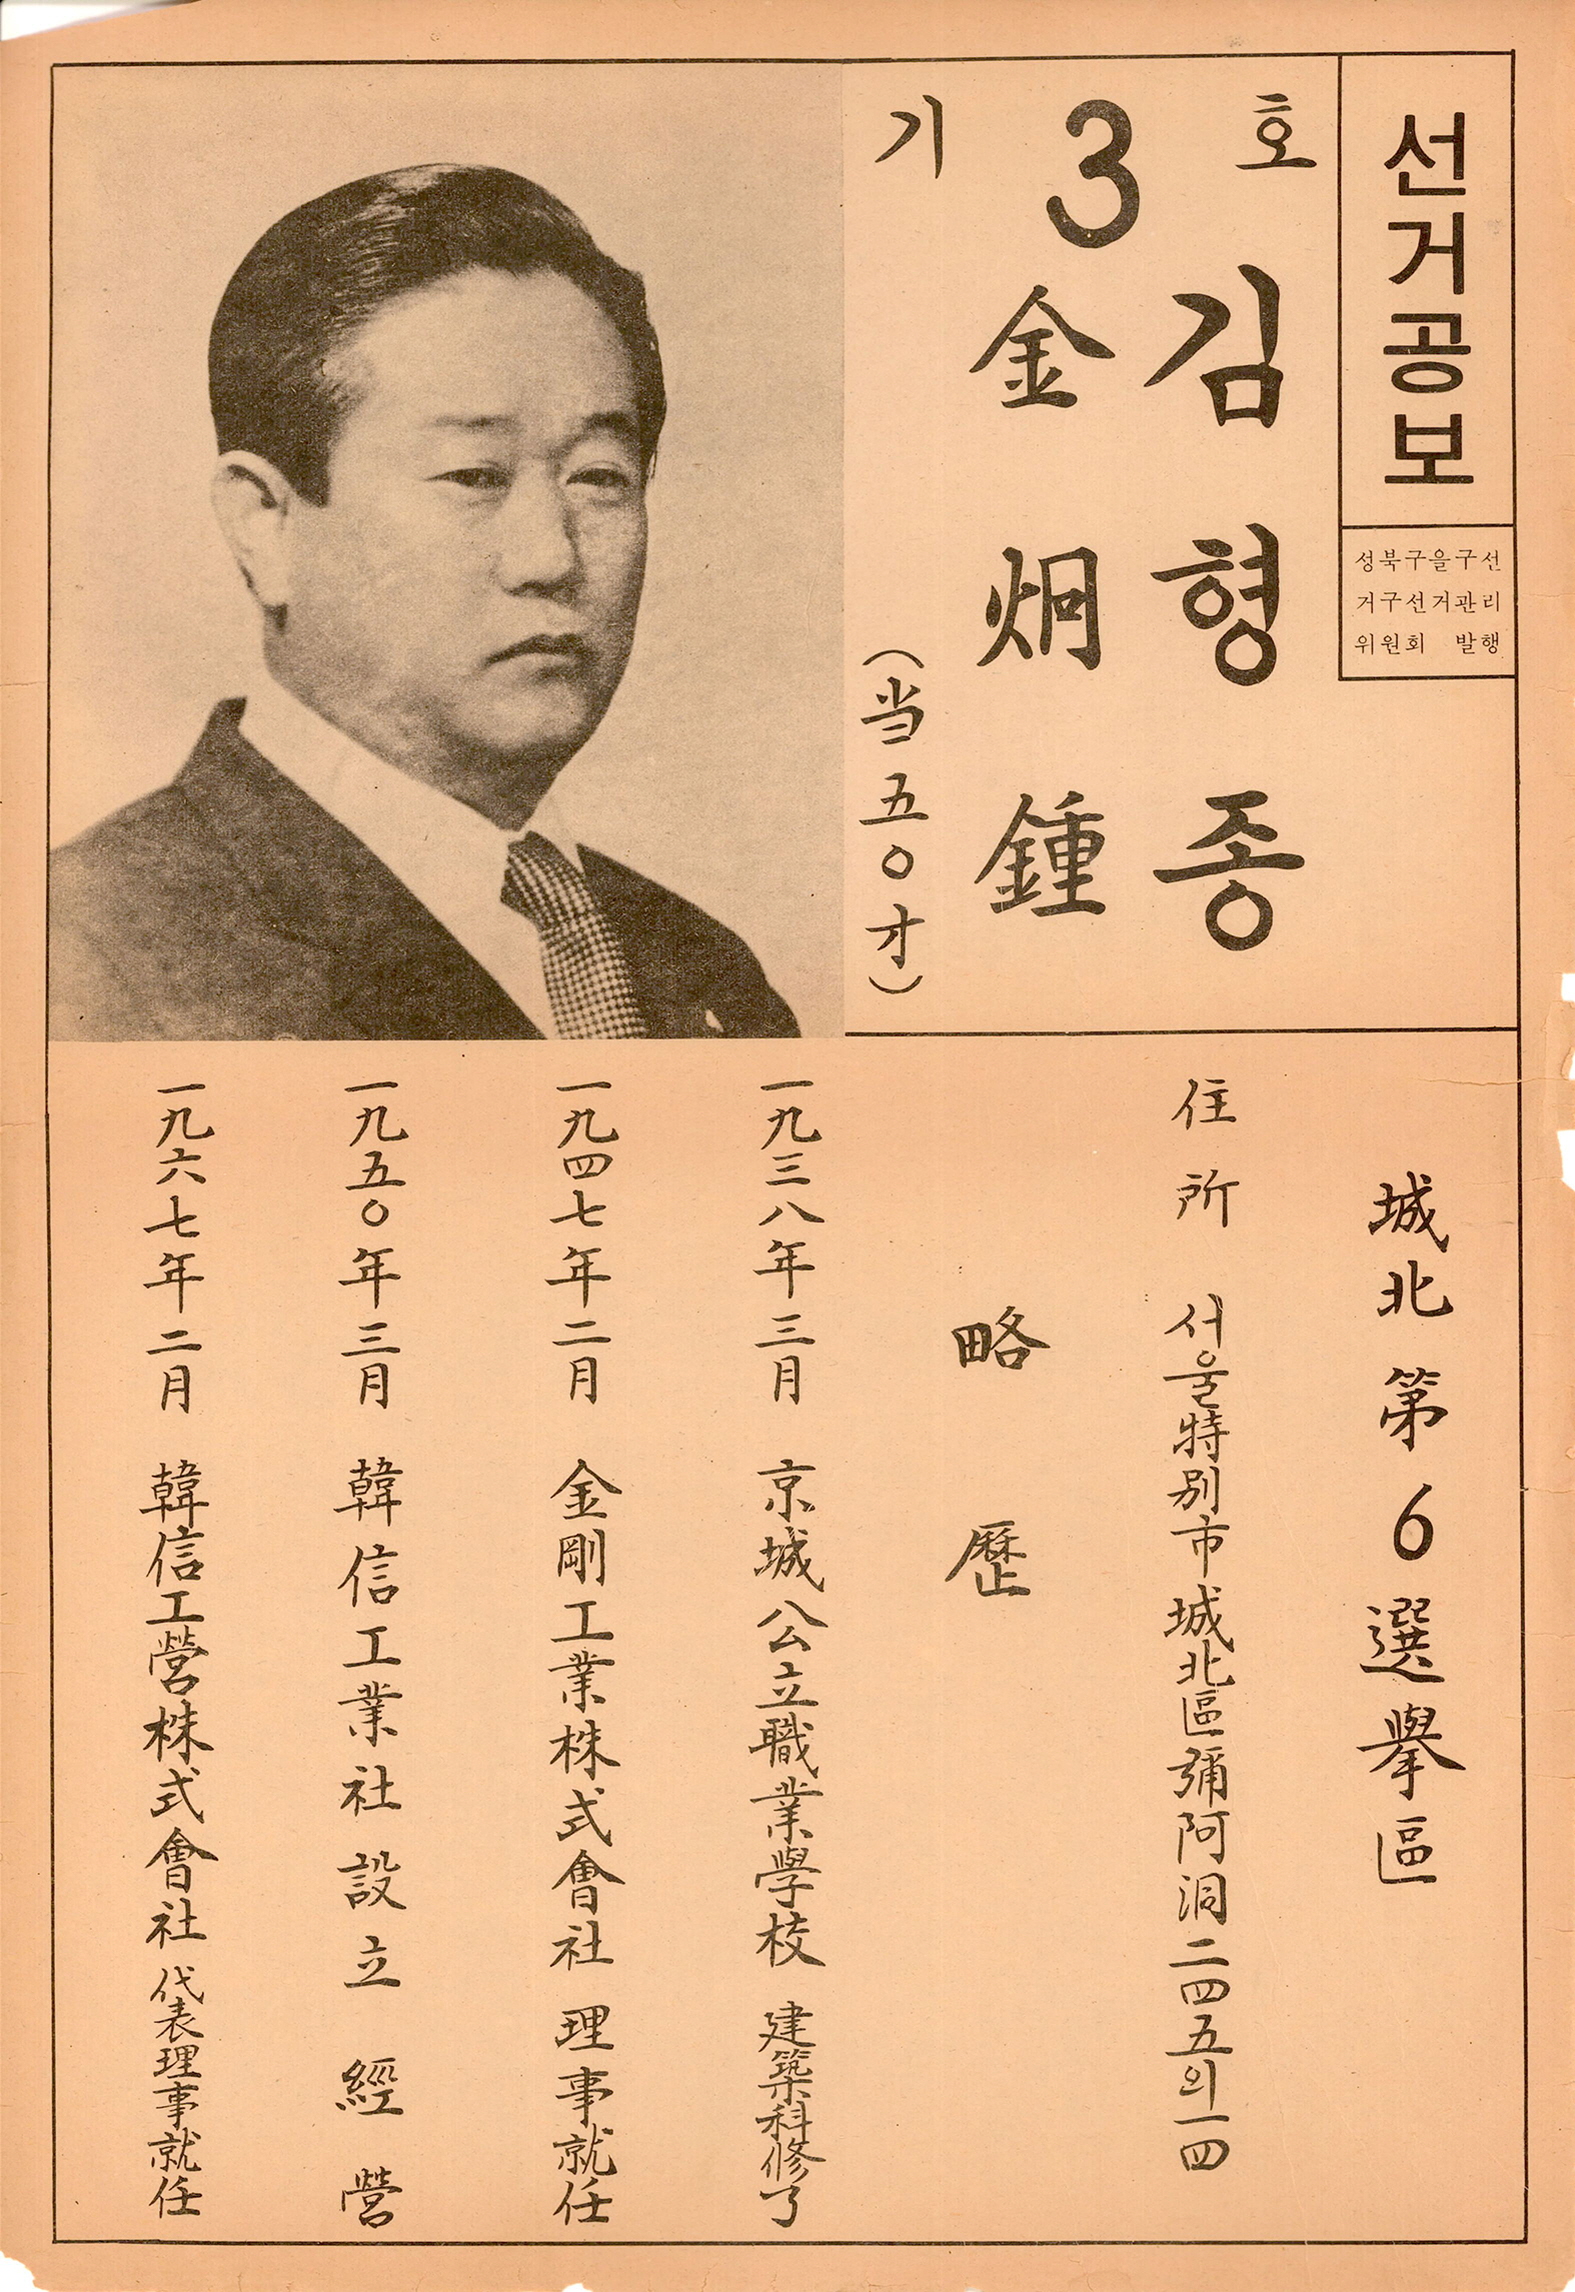 선거공보
성북구을구선
거구선거관리
위원회 발행
기 3 호
김형종
金炯鍾
(当五〇才)
城北第6選擧區
住所 서울特別市城北區彌阿洞二四五의一四
略歷
一九三八年三月 京城公立職業學校 建築科修了
一九四七年二月 金剛工業株式會社 理事就任
一九五〇年三月 韓信工業社設立 經營
一九六七年二月 韓信工營株式會社 代表理事就任